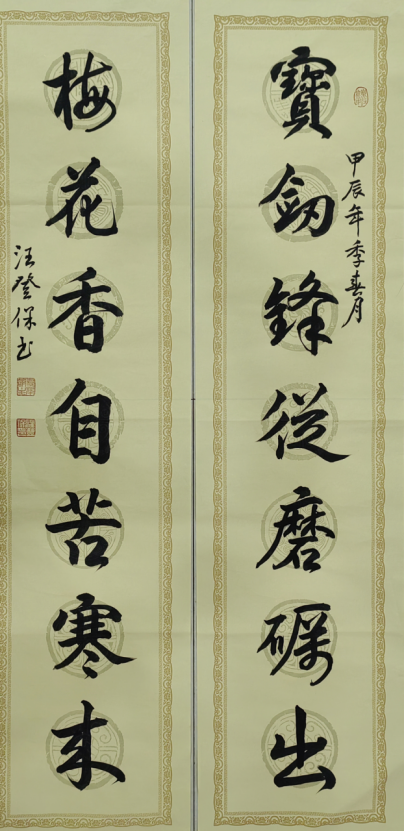 寶劔鋒從磨礪出
甲辰年季春月
梅花香自苦寒来
汪登保书